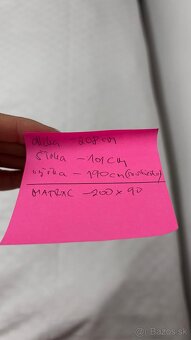 Dĺžka - 208 cm
šírka - 101 cm
výška - 190 cm
MATRAC - 200 x 90
© Bazos.sk